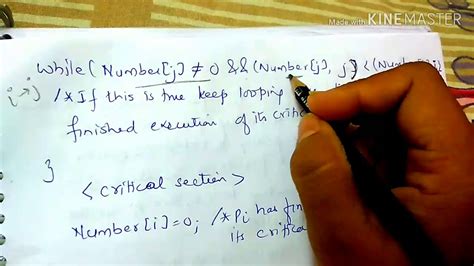 Made with KINEMASTER
while( Number[j] ≠ 0 && (Number[j], j) < (Number[i]
i → j
/*If this is true keep looping
finished execution of its critic
}
< critical section >
Number[i]=0; /*Pi has fin
its critica